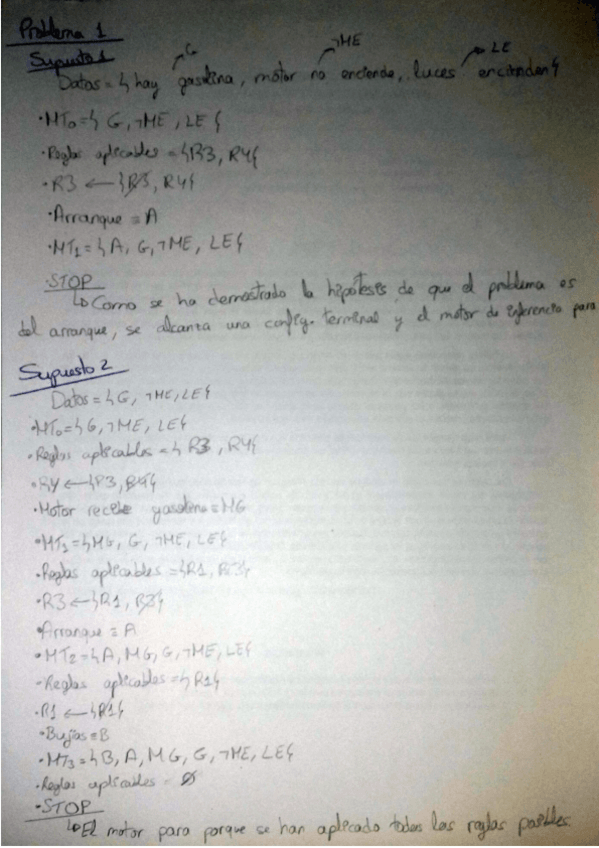 Problema 1
Supuesto 1
G ¬ME LE
Datos = { hay gasolina, motor no enciende, luces encienden }
·MT₀ = { G, ¬ME, LE }
·Reglas aplicables = { R3, R4 }
·R3 ← { R3, R4 }
·Arranque = A
·MT₁ = { A, G, ¬ME, LE }
·STOP
↳ Como se ha demostrado la hipótesis de que el problema es
del arranque, se alcanza una config. terminal y el motor de inferencia para
Supuesto 2
Datos = { G, ¬ME, LE }
·MT₀ = { G, ¬ME, LE }
·Reglas aplicables = { R3, R4 }
·R4 ← { R3, R4 }
·Motor recibe gasolina = MG
·MT₁ = { MG, G, ¬ME, LE }
·Reglas aplicables = { R1, R3 }
·R3 ← { R1, R3 }
·Arranque = A
·MT₂ = { A, MG, G, ¬ME, LE }
·Reglas aplicables = { R1 }
·R1 ← { R1 }
·Bujías = B
·MT₃ = { B, A, MG, G, ¬ME, LE }
·Reglas aplicables = Ø
·STOP
↳ El motor para porque se han aplicado todas las reglas posibles.